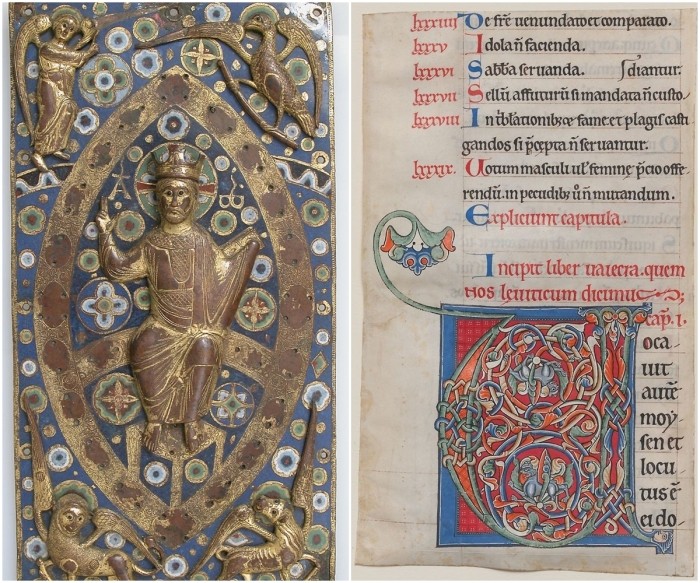 A
lxxxiiii De fr̄e uenundato et comparato.
lxxxv Idola n̄ facienda.
lxxxvi Sabb̄a seruanda. diantur.
lxxxvii Sellū affuturū si mandata n̄ custo
lxxxviii In et fame et plagis casti
gandos si p̄cepta n̄ seruantur.
lxxxix. Uotum masculi ul' femine p̄cio offe
rendū. in pecudib; ū n̄ mutandum.
Expliciunt capitula.
Incipit liber uaiecra. quem
nos leuiticum dicimus;
cap̄. i.
Uoca
uit
autē
moy
sen et
locu
tus ē
ei do-